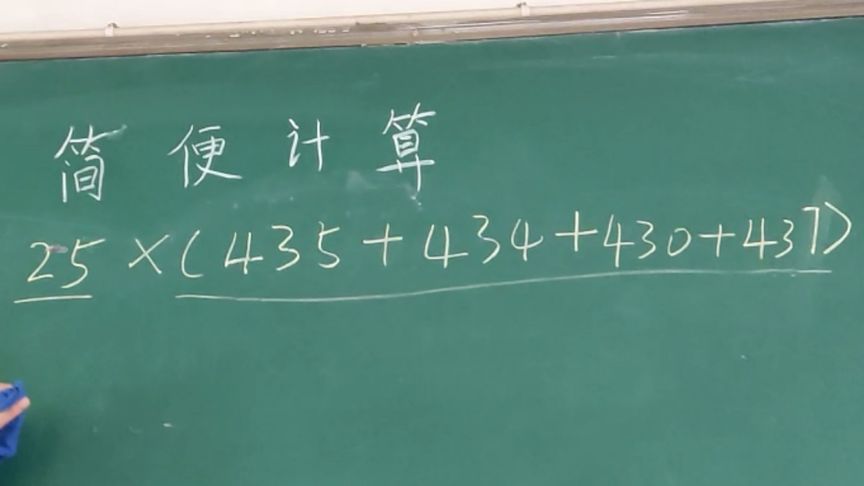 简便计算
25×(435+434+430+437)